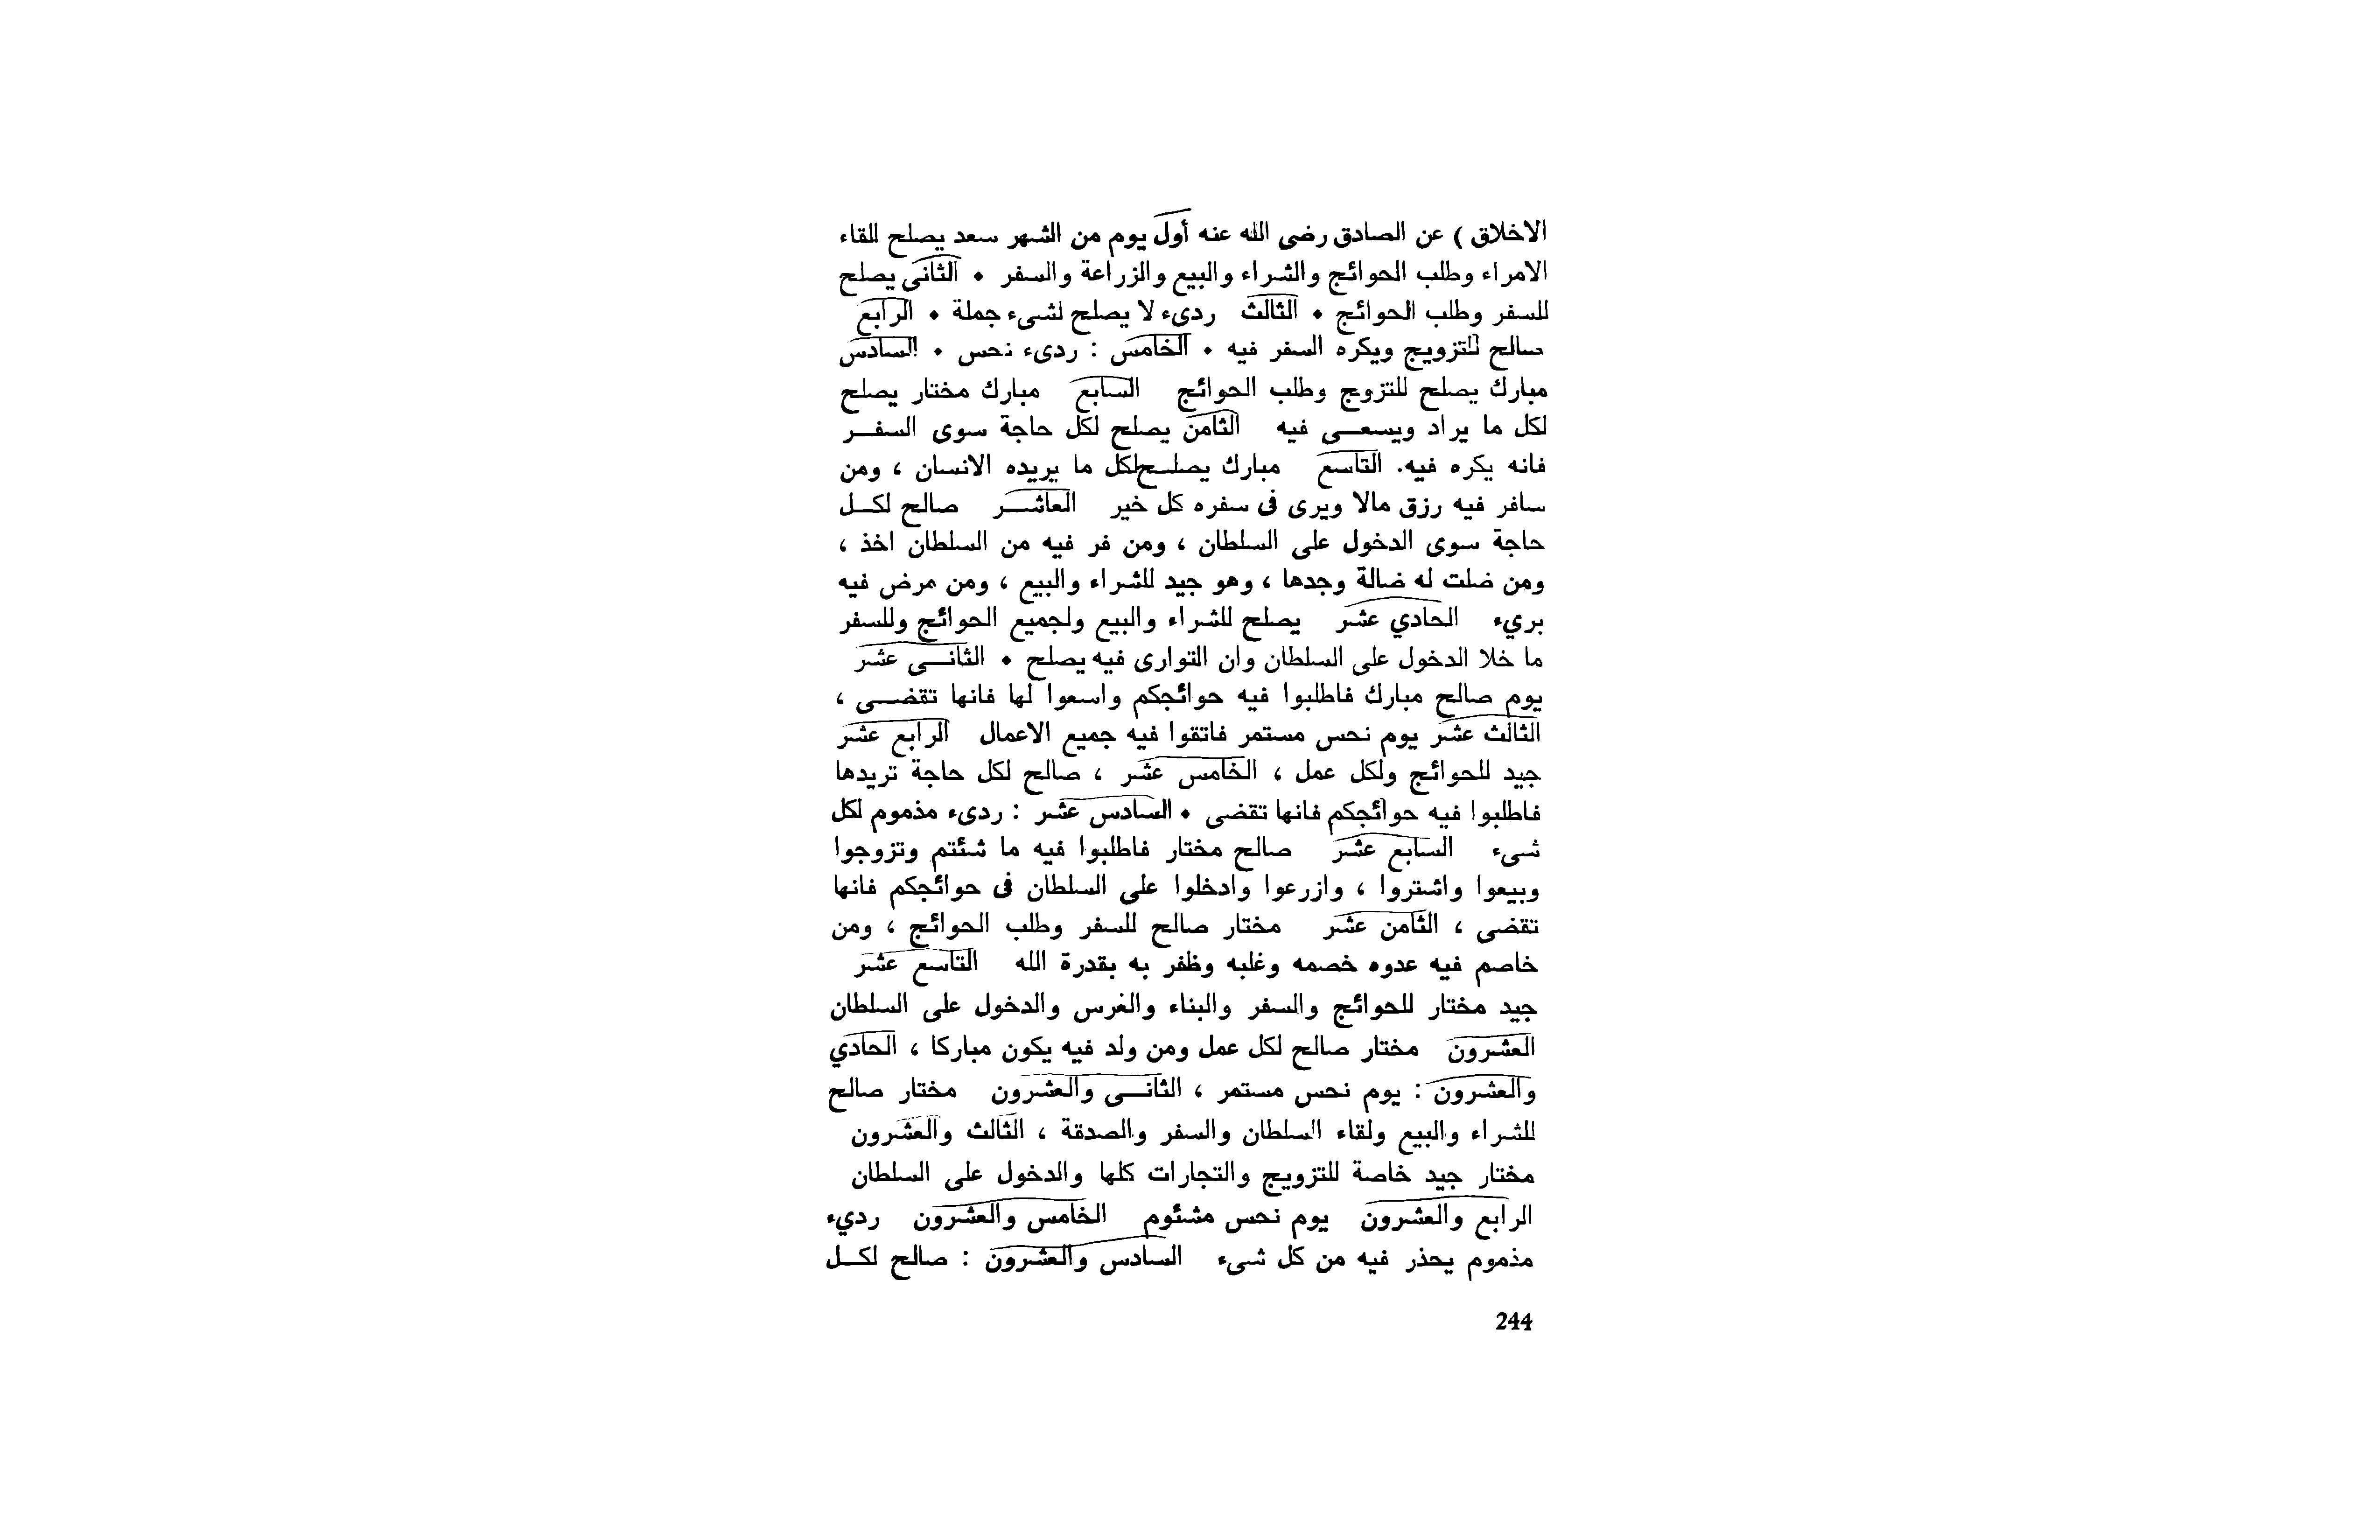 الاخلاق ) عن الصادق رضى الله عنه أول يوم من الشهر سعد يصلح للقاء
الامراء وطلب الحوائج والشراء والبيع والزراعة والسفر ٠ الثانى يصلح
للسفر وطلب الحوائج ٠ الثالث ردىء لا يصلح لشىء جملة ٠ الرابع
صالح للتزويج ويكره السفر فيه ٠ الخامس : ردىء نحس ٠ السادس
مبارك يصلح للتزوج وطلب الحوائج السابع مبارك مختار يصلح
لكل ما يراد ويسعى فيه الثامن يصلح لكل حاجة سوى السفر
فانه يكره فيه. التاسع مبارك يصلح لكل ما يريده الانسان ، ومن
سافر فيه رزق مالا ويرى فى سفره كل خير العاشر صالح لكل
حاجة سوى الدخول على السلطان ، ومن فر فيه من السلطان اخذ ،
ومن ضلت له ضالة وجدها ، وهو جيد للشراء والبيع ، ومن مرض فيه
بريء الحادي عشر يصلح للشراء والبيع ولجميع الحوائج وللسفر
ما خلا الدخول على السلطان وان التوارى فيه يصلح ٠ الثانى عشر
يوم صالح مبارك فاطلبوا فيه حوائجكم واسعوا لها فانها تقضى ،
الثالث عشر يوم نحس مستمر فاتقوا فيه جميع الاعمال الرابع عشر
جيد للحوائج ولكل عمل ، الخامس عشر ، صالح لكل حاجة تريدها
فاطلبوا فيه حوائجكم فانها تقضى ٠ السادس عشر : ردىء مذموم لكل
شىء السابع عشر صالح مختار فاطلبوا فيه ما شئتم وتزوجوا
وبيعوا واشتروا ، وازرعوا وادخلوا على السلطان فى حوائجكم فانها
تقضى ، الثامن عشر مختار صالح للسفر وطلب الحوائج ، ومن
خاصم فيه عدوه خصمه وغلبه وظفر به بقدرة الله التاسع عشر
جيد مختار للحوائج والسفر والبناء والغرس والدخول على السلطان
العشرون مختار صالح لكل عمل ومن ولد فيه يكون مباركا ، الحادي
والعشرون : يوم نحس مستمر ، الثانى والعشرون مختار صالح
للشراء والبيع ولقاء السلطان والسفر والصدقة ، الثالث والعشرون
مختار جيد خاصة للتزويج والتجارات كلها والدخول على السلطان
الرابع والعشرون يوم نحس مشئوم الخامس والعشرون رديء
مذموم يحذر فيه من كل شىء السادس والعشرون : صالح لكل
244